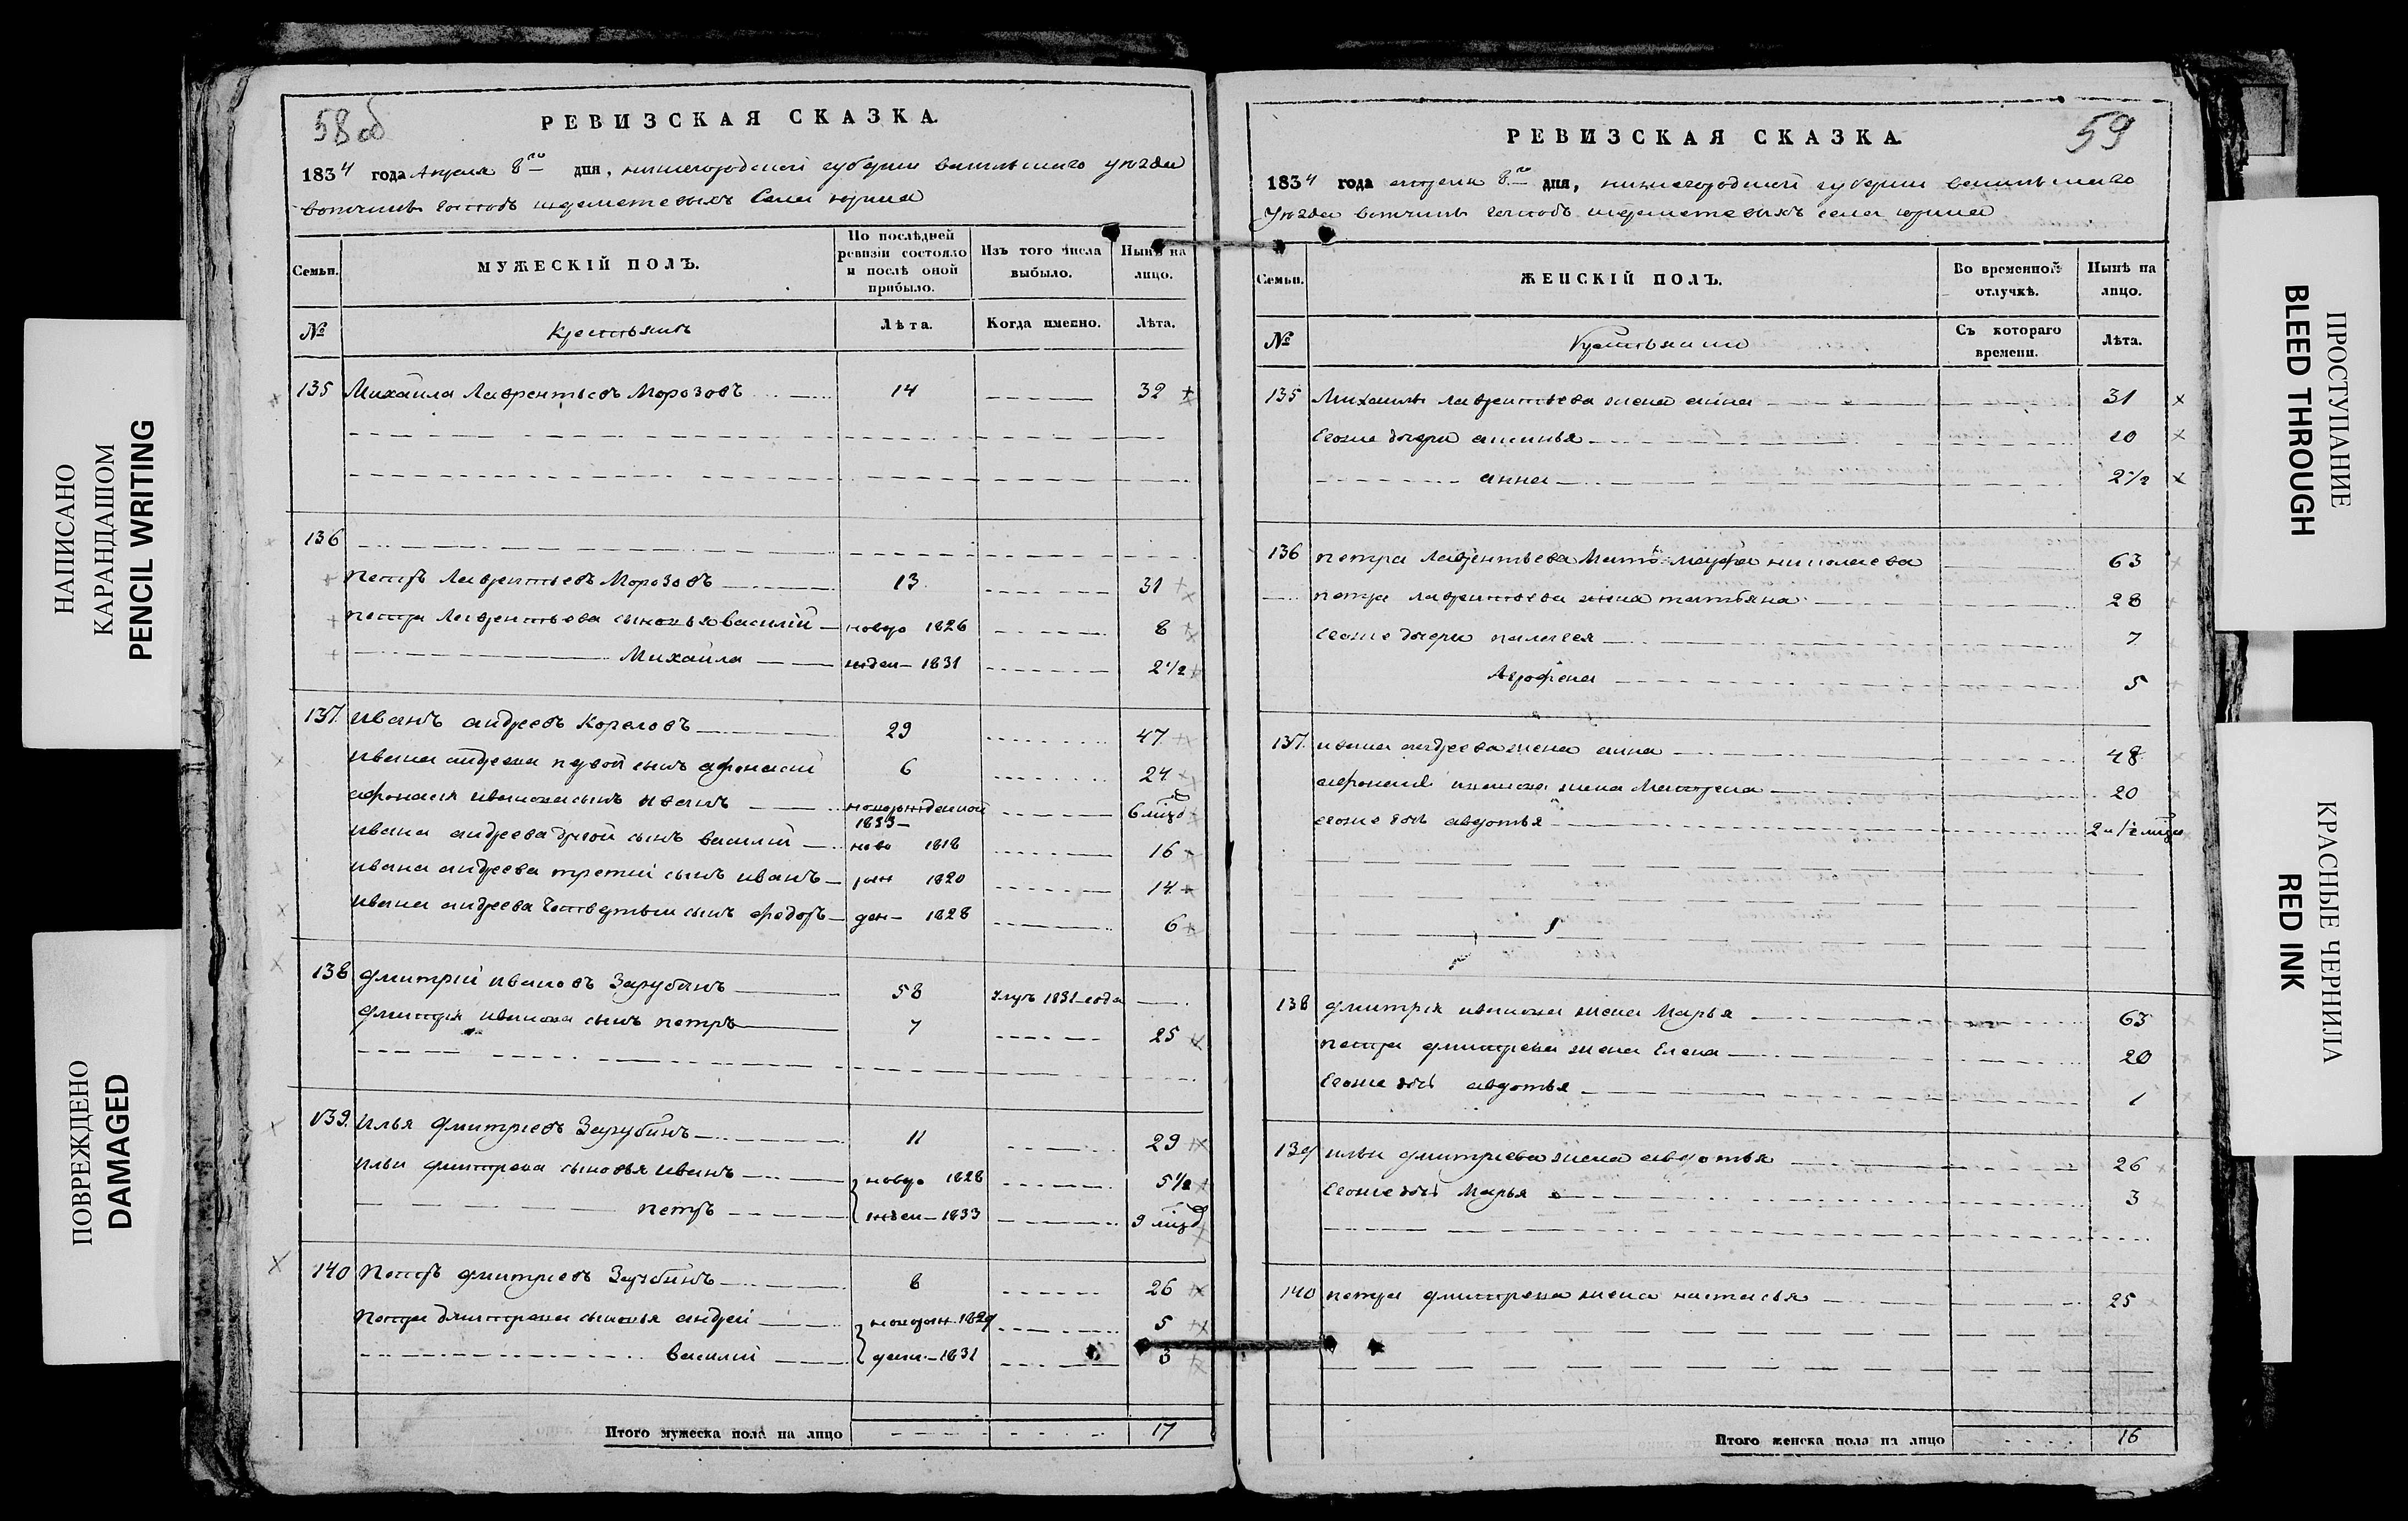 НАПИСАНО
КАРАНДАШОМ
PENCIL WRITING
ПОВРЕЖДЕНО
DAMAGED
58 об
РЕВИЗСКАЯ СКАЗКА.
1834 года Апреля 8го дня, нижегородской губернии васильскаго уѣзда
вотчины господъ шереметевыхъ села юрина
Семьи. МУЖЕСКІЙ ПОЛЪ. По послѣдней ревизіи состояло и послѣ оной прибыло. Изъ того числа выбыло. Нынѣ на лицо.
№ Крестьянъ Лѣта. Когда именно. Лѣта.
135 Михаила Лаврентьевъ Морозовъ 14 32
136
Петръ Лаврентьевъ Морозовъ 13 31
петра Лаврентьева сыновья василий новоро 1826 8
Михаила жден 1831 2 1/2
137. иванъ андреевъ Корелов 29 47
ивана андреева первой сынъ афонасий 6 24
афонасия иванова сынъ иванъ новорожденной 1833 6
ивана андреева другой сынъ василий ново 1818 16
ивана андреева третий сынъ иванъ рож 1820 14
ивана андреева четвертый сынъ федоръ ден 1828 6
138 дмитрий ивановъ Зарубинъ 58 1831 года
дмитрия иванова сынъ петръ 7 25
139. илья дмитриевъ Зарубинъ 11 29
ильи дмитрева сыновья иванъ новоро 1828 5 1/2
петръ жден 1833 9
140 Петръ дмитриевъ Зарубинъ 8 26
Петра дмитрева сыновья андрей новорож 1829 5
василий ден 1831 3
Итого мужеска пола на лицо 17
59
РЕВИЗСКАЯ СКАЗКА.
1834 года апреля 8го дня, нижегородской губернии васильскаго
уѣзда вотчины господъ шереметевыхъ села юрина
Семьи. ЖЕНСКІЙ ПОЛЪ. Во временной отлучкѣ. Нынѣ на лицо.
№ Крестьянки Съ котораго времени. Лѣта.
135 Михаилы лаврентьева жена анна 31
Егоже дочери аксинья 10
анна 2 1/2
136 петра лаврентьева мать марфа николаева 63
петра лаврентьева жена татьяна 28
егоже дочери палагея 7
Агрофена 5
137. ивана андреева жена анна 48
афонасия иванова жена Матрена 20
егоже дочь авдотья
138 дмитрия иванова жена Марья 63
петра дмитрева жена Елена 20
Егоже дочь авдотья 1
139 ильи дмитриева жена авдотья 26
Егоже дочь Марья 3
140 петра дмитрева жена настасья 25
Итого женска пола на лицо 16
ПРОСТУПАНИЕ
BLEED THROUGH
КРАСНЫЕ ЧЕРНИЛА
RED INK